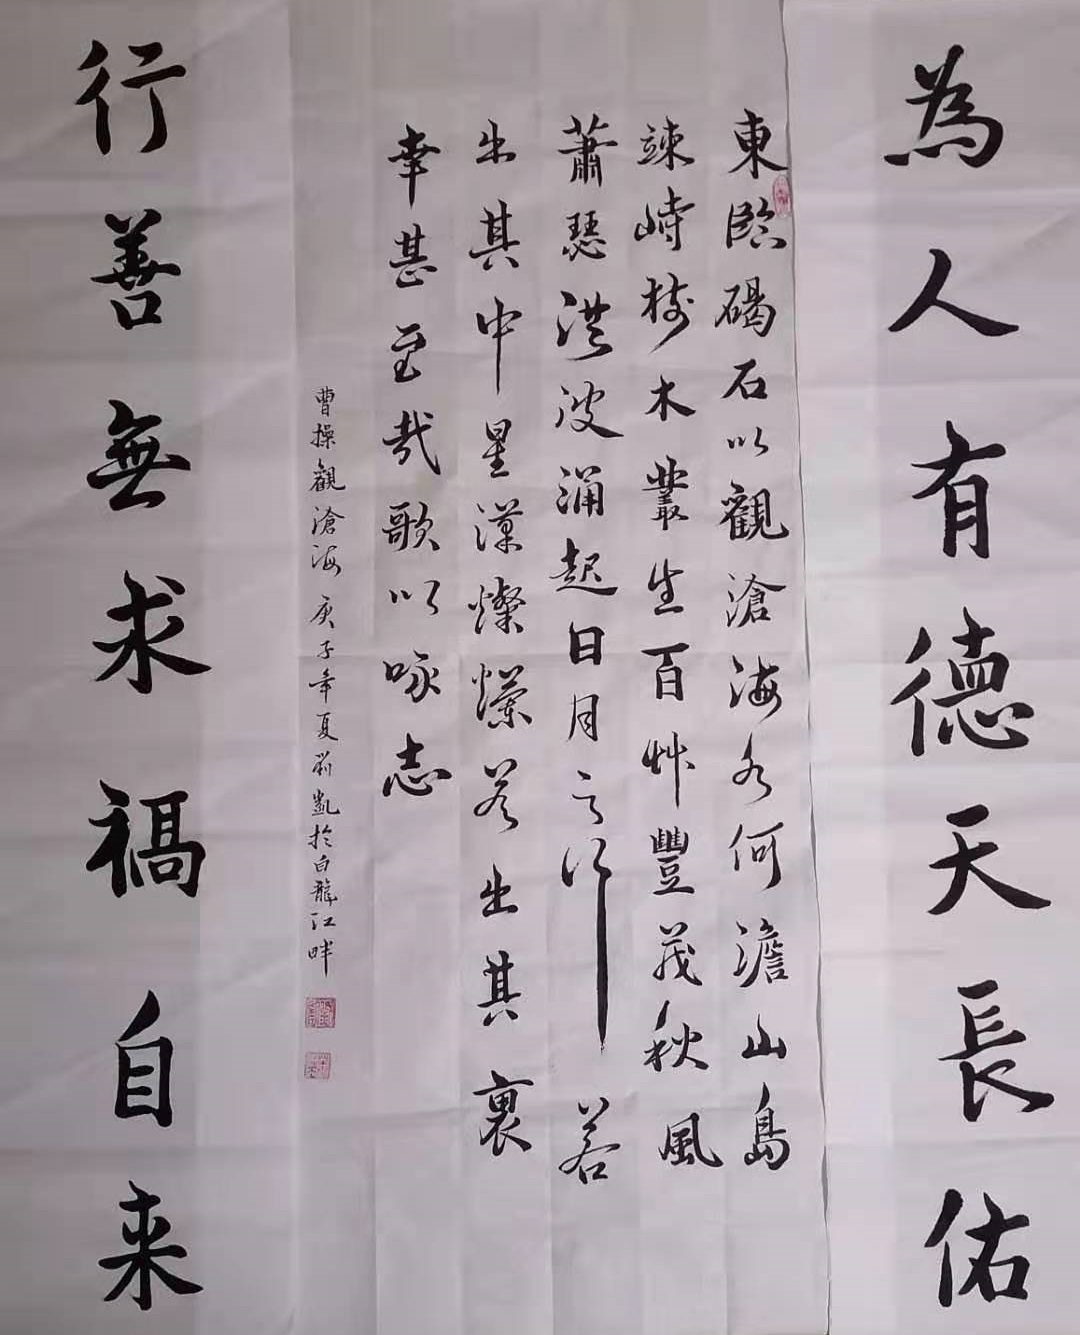 為人有德天長佑
東臨碣石以觀滄海水何澹山島
竦峙樹木叢生百艸豐茂秋風
蕭瑟洪波涌起日月之行若
出其中星漢燦爛若出其裏
幸甚至哉歌以咏志
曹操觀滄海 庚子年夏 凱於白龍江畔
行善無求禍自来